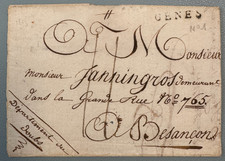 GENES
A Monsieur
monsieur Janningros demeurant
dans la Grande Rue N.o 765.
A Besançon
Département du
Doubs